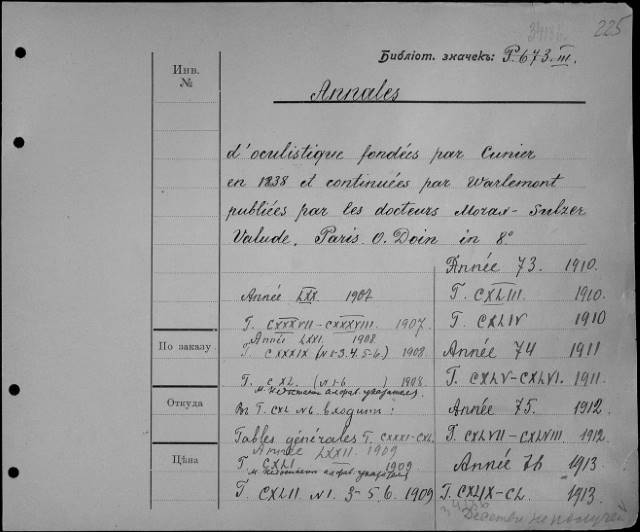 225
Библіот. значекъ: P.673.III.
Инв. №
Annales
d'oculistique fondées par Cunier
en 1838 et continuées par Warlemont
publiées par les docteurs Morax-Sulzer
Valude. Paris. O. Doin in 8°
Année LXX. 1907
T. CXXXVII-CXXXVIII. 1907
Année LXXI. 1908
T. CXXXIX (N 1-3.4.5-6) 1908
T. CXL. (N 1-6) 1908
Въ T. CXL N6. входитъ:
Tables générales T. CXXXI-CXL
Année LXXII. 1909
T. CXLI 1909
T. CXLII N1. 3-5.6. 1909
Année 73. 1910.
T. CXLIII. 1910.
T. CXLIV 1910
Année 74 1911
T. CXLV-CXLVI. 1911.
Année 75. 1912
T. CXLVII-CXLVIII. 1912.
Année 76 1913
T. CXLIX-CL 1913.
По заказу
Откуда
Цѣна